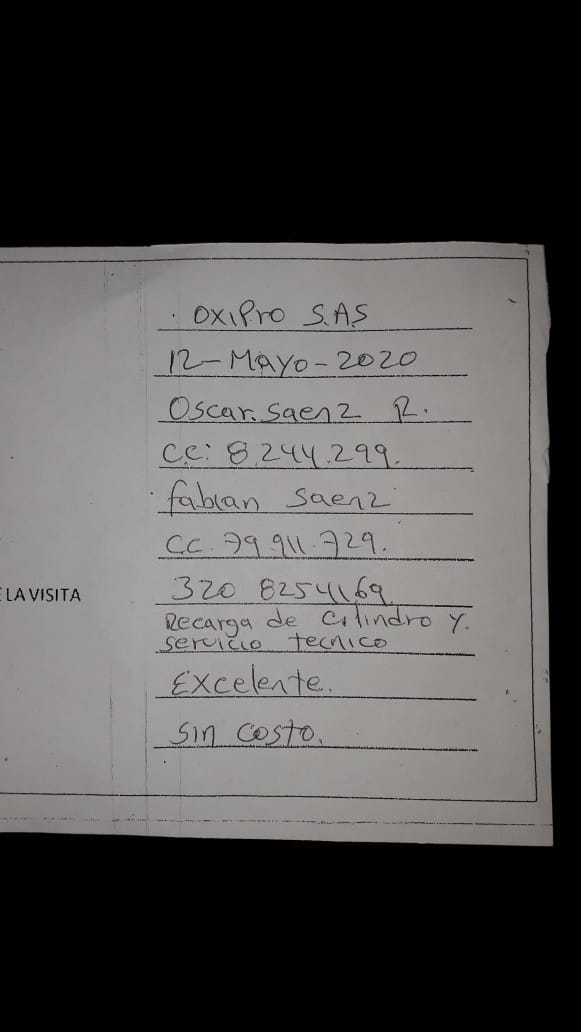 OXIPro S.A.S
12-Mayo-2020
Oscar. Saenz R.
C.C: 8.244.299.
fabian Saenz
CC. 79.911.729.
320 8254169
E LA VISITA
Recarga de Cilindro y.
servicio tecnico
Excelente.
Sin costo.